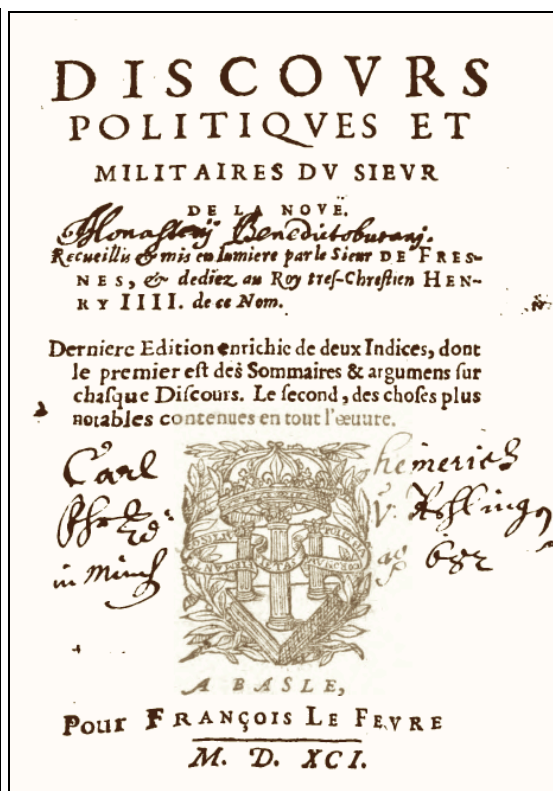 DISCOVRS
POLITIQVES ET
MILITAIRES DV SIEVR
DE LA NOVË.
Monasterij Benedictoburani.
Recueillis & mis en lumiere par le Sieur DE FRES-
NES, & dediez au Roy tres-Chrestien HEN-
RY IIII. de ce Nom.
Derniere Edition enrichie de deux Indices, dont
le premier est des Sommaires & argumens sur
chasque Discours. Le second, des choses plus
notables contenues en tout l'œuure.
Carl
in Münch
A BASLE,
Pour FRANÇOIS LE FEVRE
M. D. XCI.